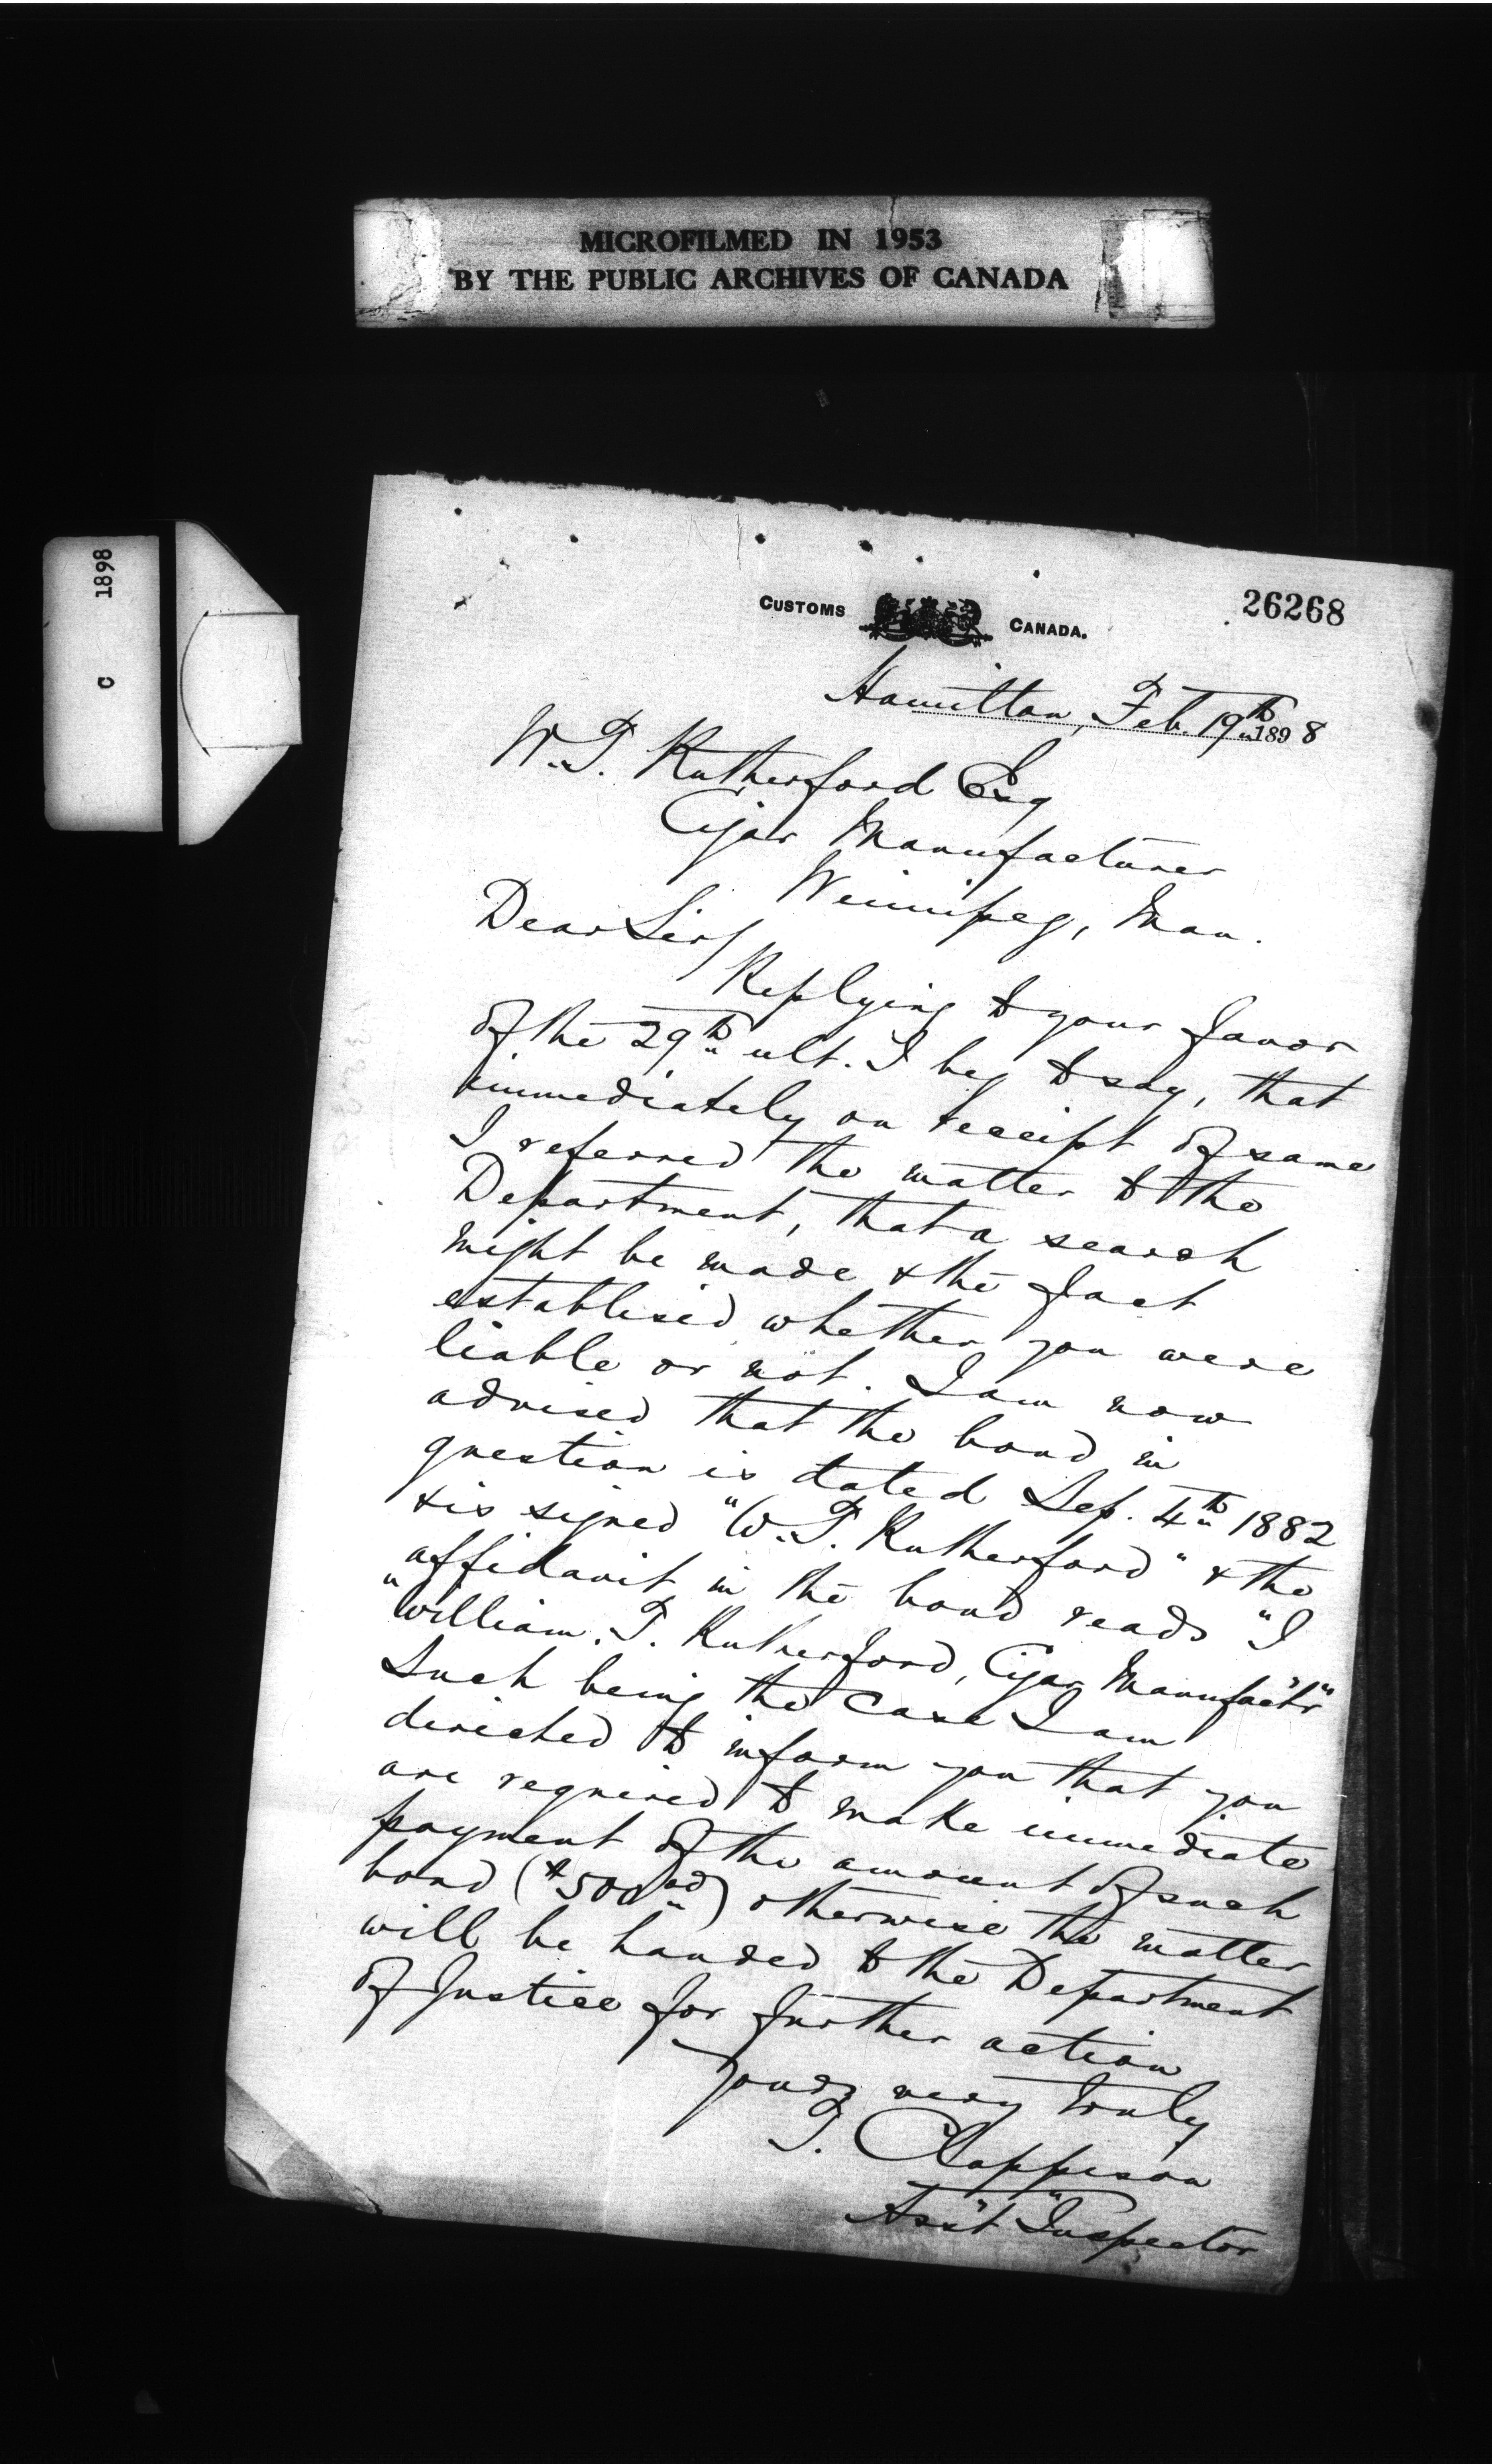 MICROFILMED IN 1953
BY THE PUBLIC ARCHIVES OF CANADA
C 1898
26268
CUSTOMS CANADA.
Hamilton, Feb. 19th 1898
W. T. Rutherford Esq
Cigar Manufacturer
Winnipeg, Man.
Dear Sir/
Replying to your favor
of the 29th ult. I beg to say, that
immediately on receipt of same
I referred the matter to the
Department, that a search
might be made & the fact
establised whether you were
liable or not. I am now
advised that the bond in
question is dated Sep. 4th 1882
& is signed "W. T. Rutherford" & the
affidavit in the bond reads "I
"William. T. Rutherford, Cigar Manufact'r"
Such being the case I am
directed to inform you that you
are required to make immediate
payment of the amount of such
bond ($500 00) otherwise the matter
will be handed to the Department
of Justice for further action
Yours very truly
T. Clappison
Ass't Inspector